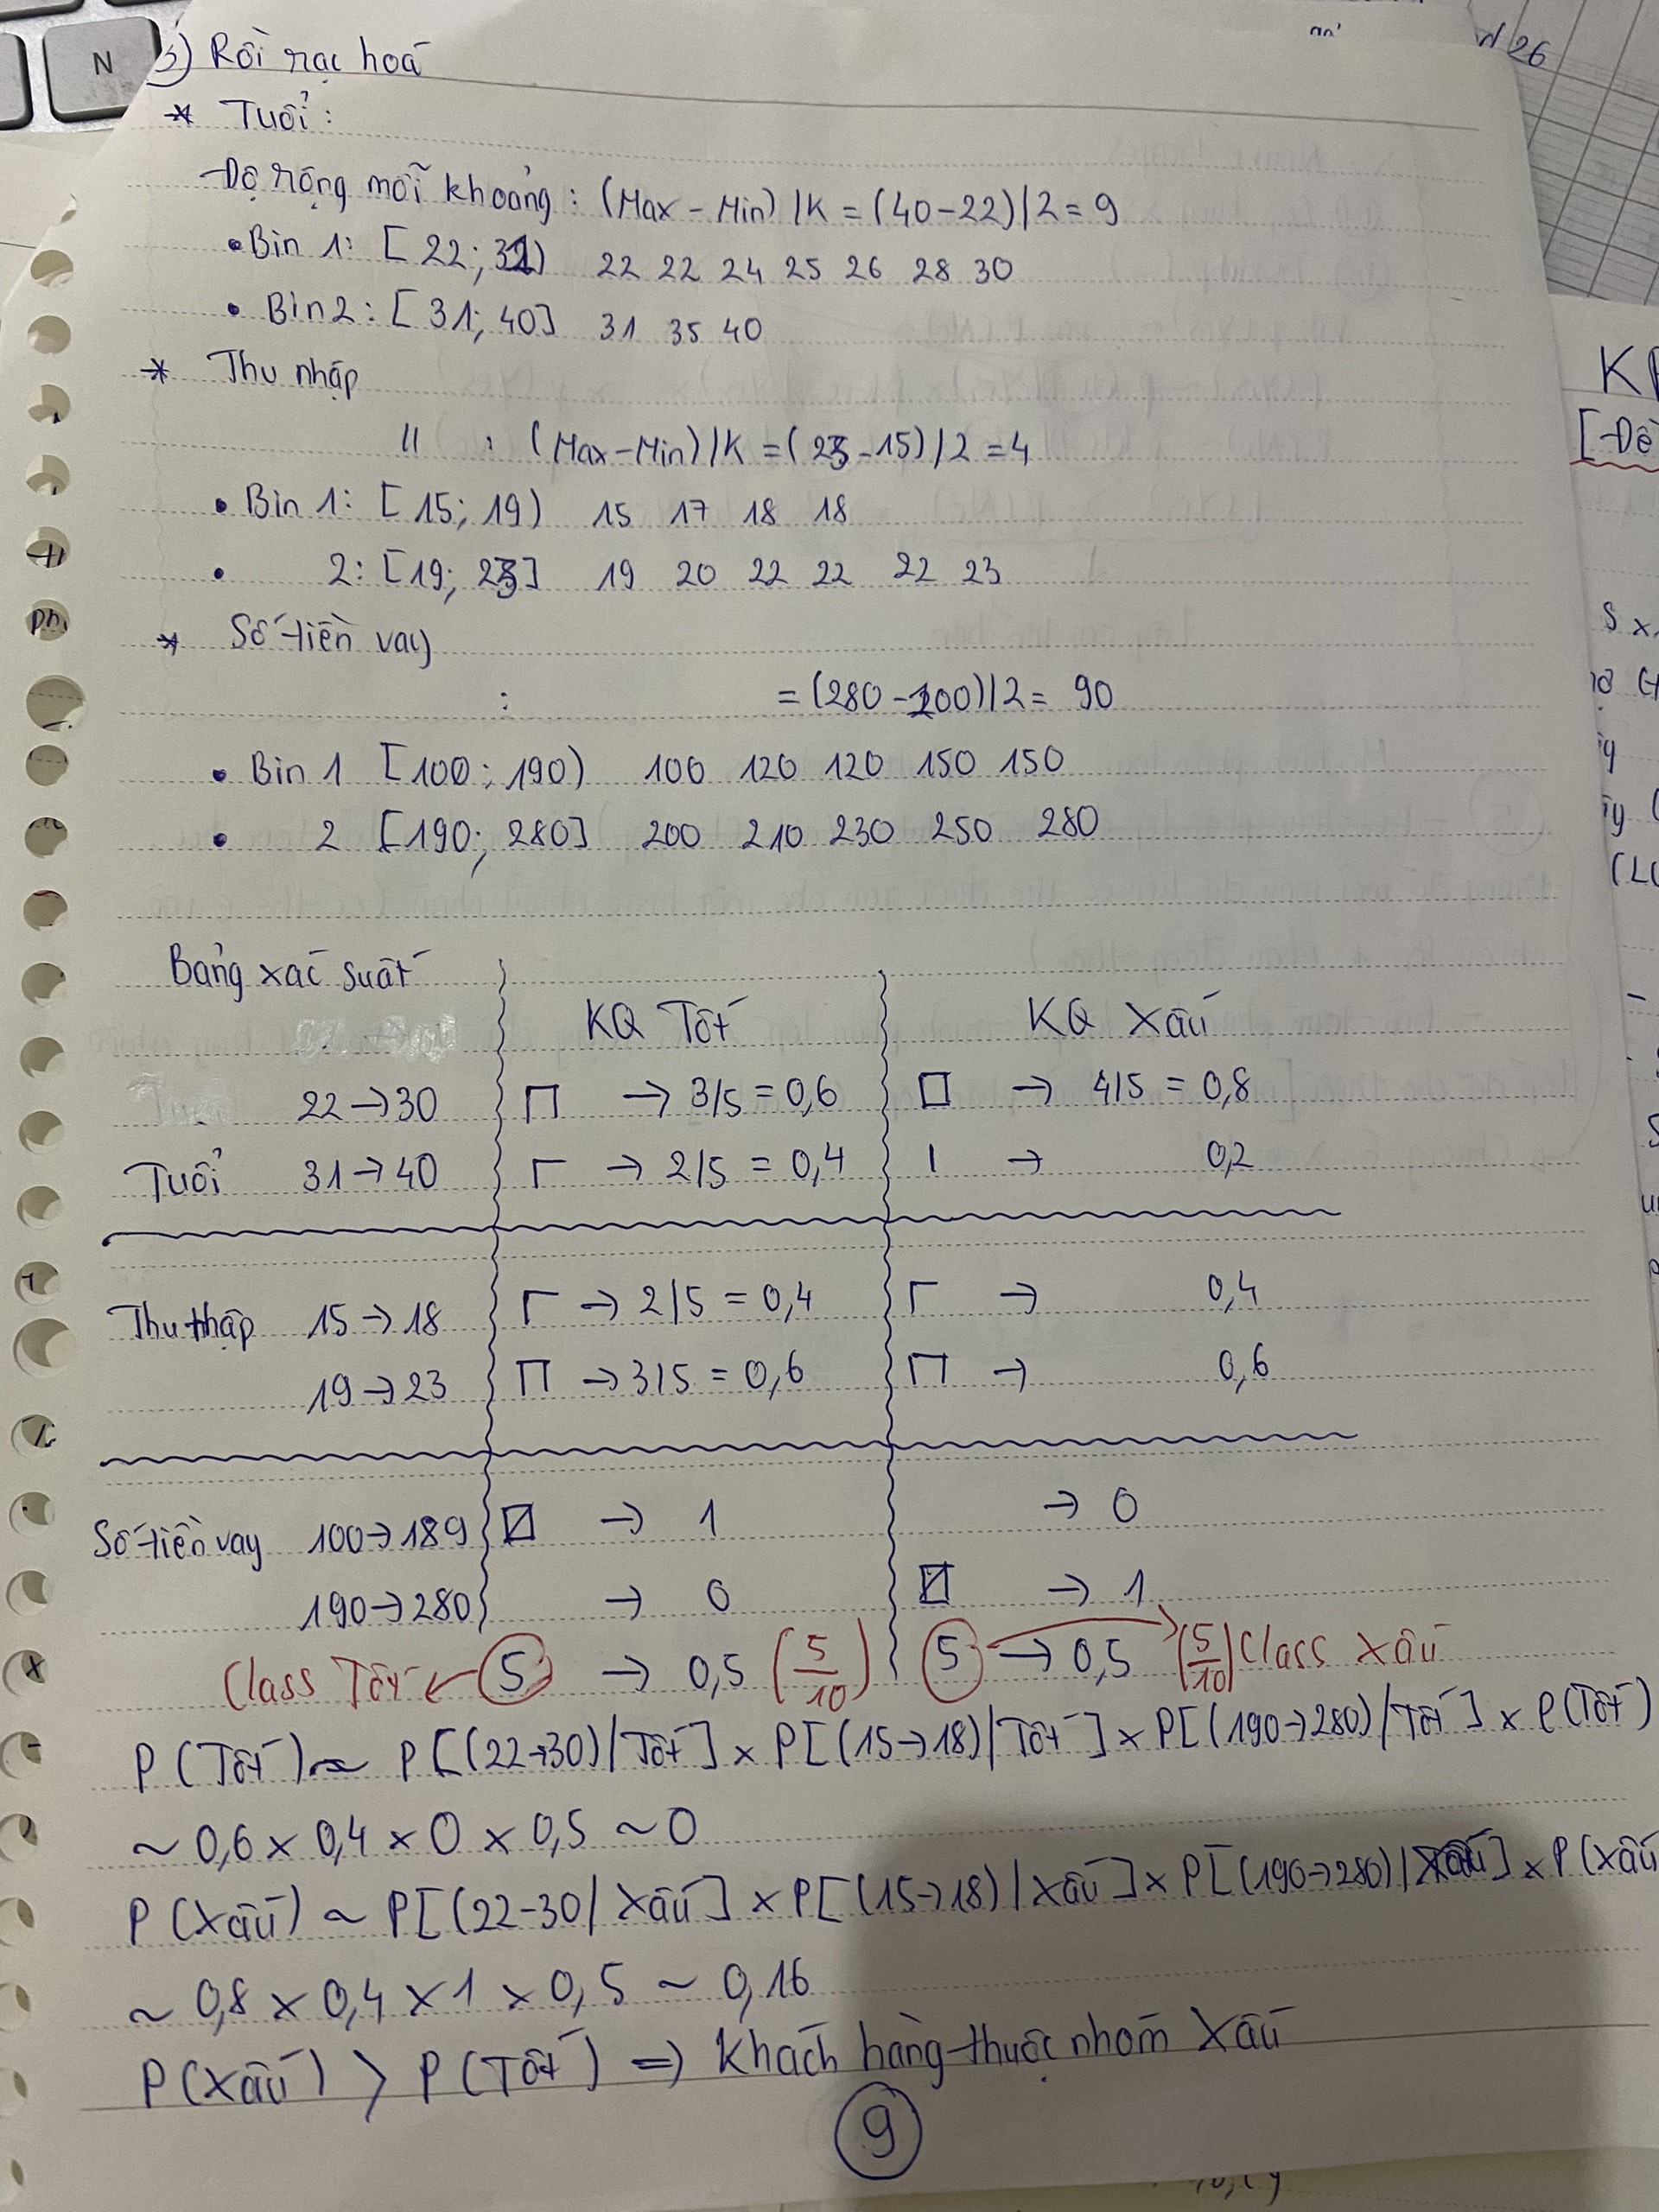 N
3) Rời rạc hoá
* Tuổi:
Độ rộng mỗi khoảng: (Max - Min) / K = (40-22)/2 = 9
• Bin 1: [22; 31) 22 22 24 25 26 28 30
• Bin 2: [31; 40] 31 35 40
* Thu nhập
" : (Max-Min)/K = (23-15)/2 = 4
• Bin 1: [15; 19) 15 17 18 18
• 2: [19; 23] 19 20 22 22 22 23
* Số tiền vay
: = (280-100)/2 = 90
• Bin 1 [100; 190) 100 120 120 150 150
• 2 [190; 280] 200 210 230 250 280
Bảng xác suất
KQ Tốt KQ Xấu
22→30 → 3/5 = 0,6 → 4/5 = 0,8
Tuổi 31→40 → 2/5 = 0,4 → 0,2
Thu nhập 15→18 → 2/5 = 0,4 → 0,4
19→23 → 3/5 = 0,6 → 0,6
Số tiền vay 100→189 → 1 → 0
190→280 → 0 → 1
Class Tốt ← 5 → 0,5 (5/10) 5 → 0,5 (5/10) Class Xấu
P(Tốt) ~ P[(22→30)/Tốt] x P[(15→18)/Tốt] x P[(190→280)/Tốt] x P(Tốt)
~ 0,6 x 0,4 x 0 x 0,5 ~ 0
P(Xấu) ~ P[(22-30/Xấu] x P[(15→18)/Xấu] x P[(190→280)/Xấu] x P(Xấu
~ 0,8 x 0,4 x 1 x 0,5 ~ 0,16
P(Xấu) > P(Tốt) => Khách hàng thuộc nhóm Xấu
9
26
[Đề